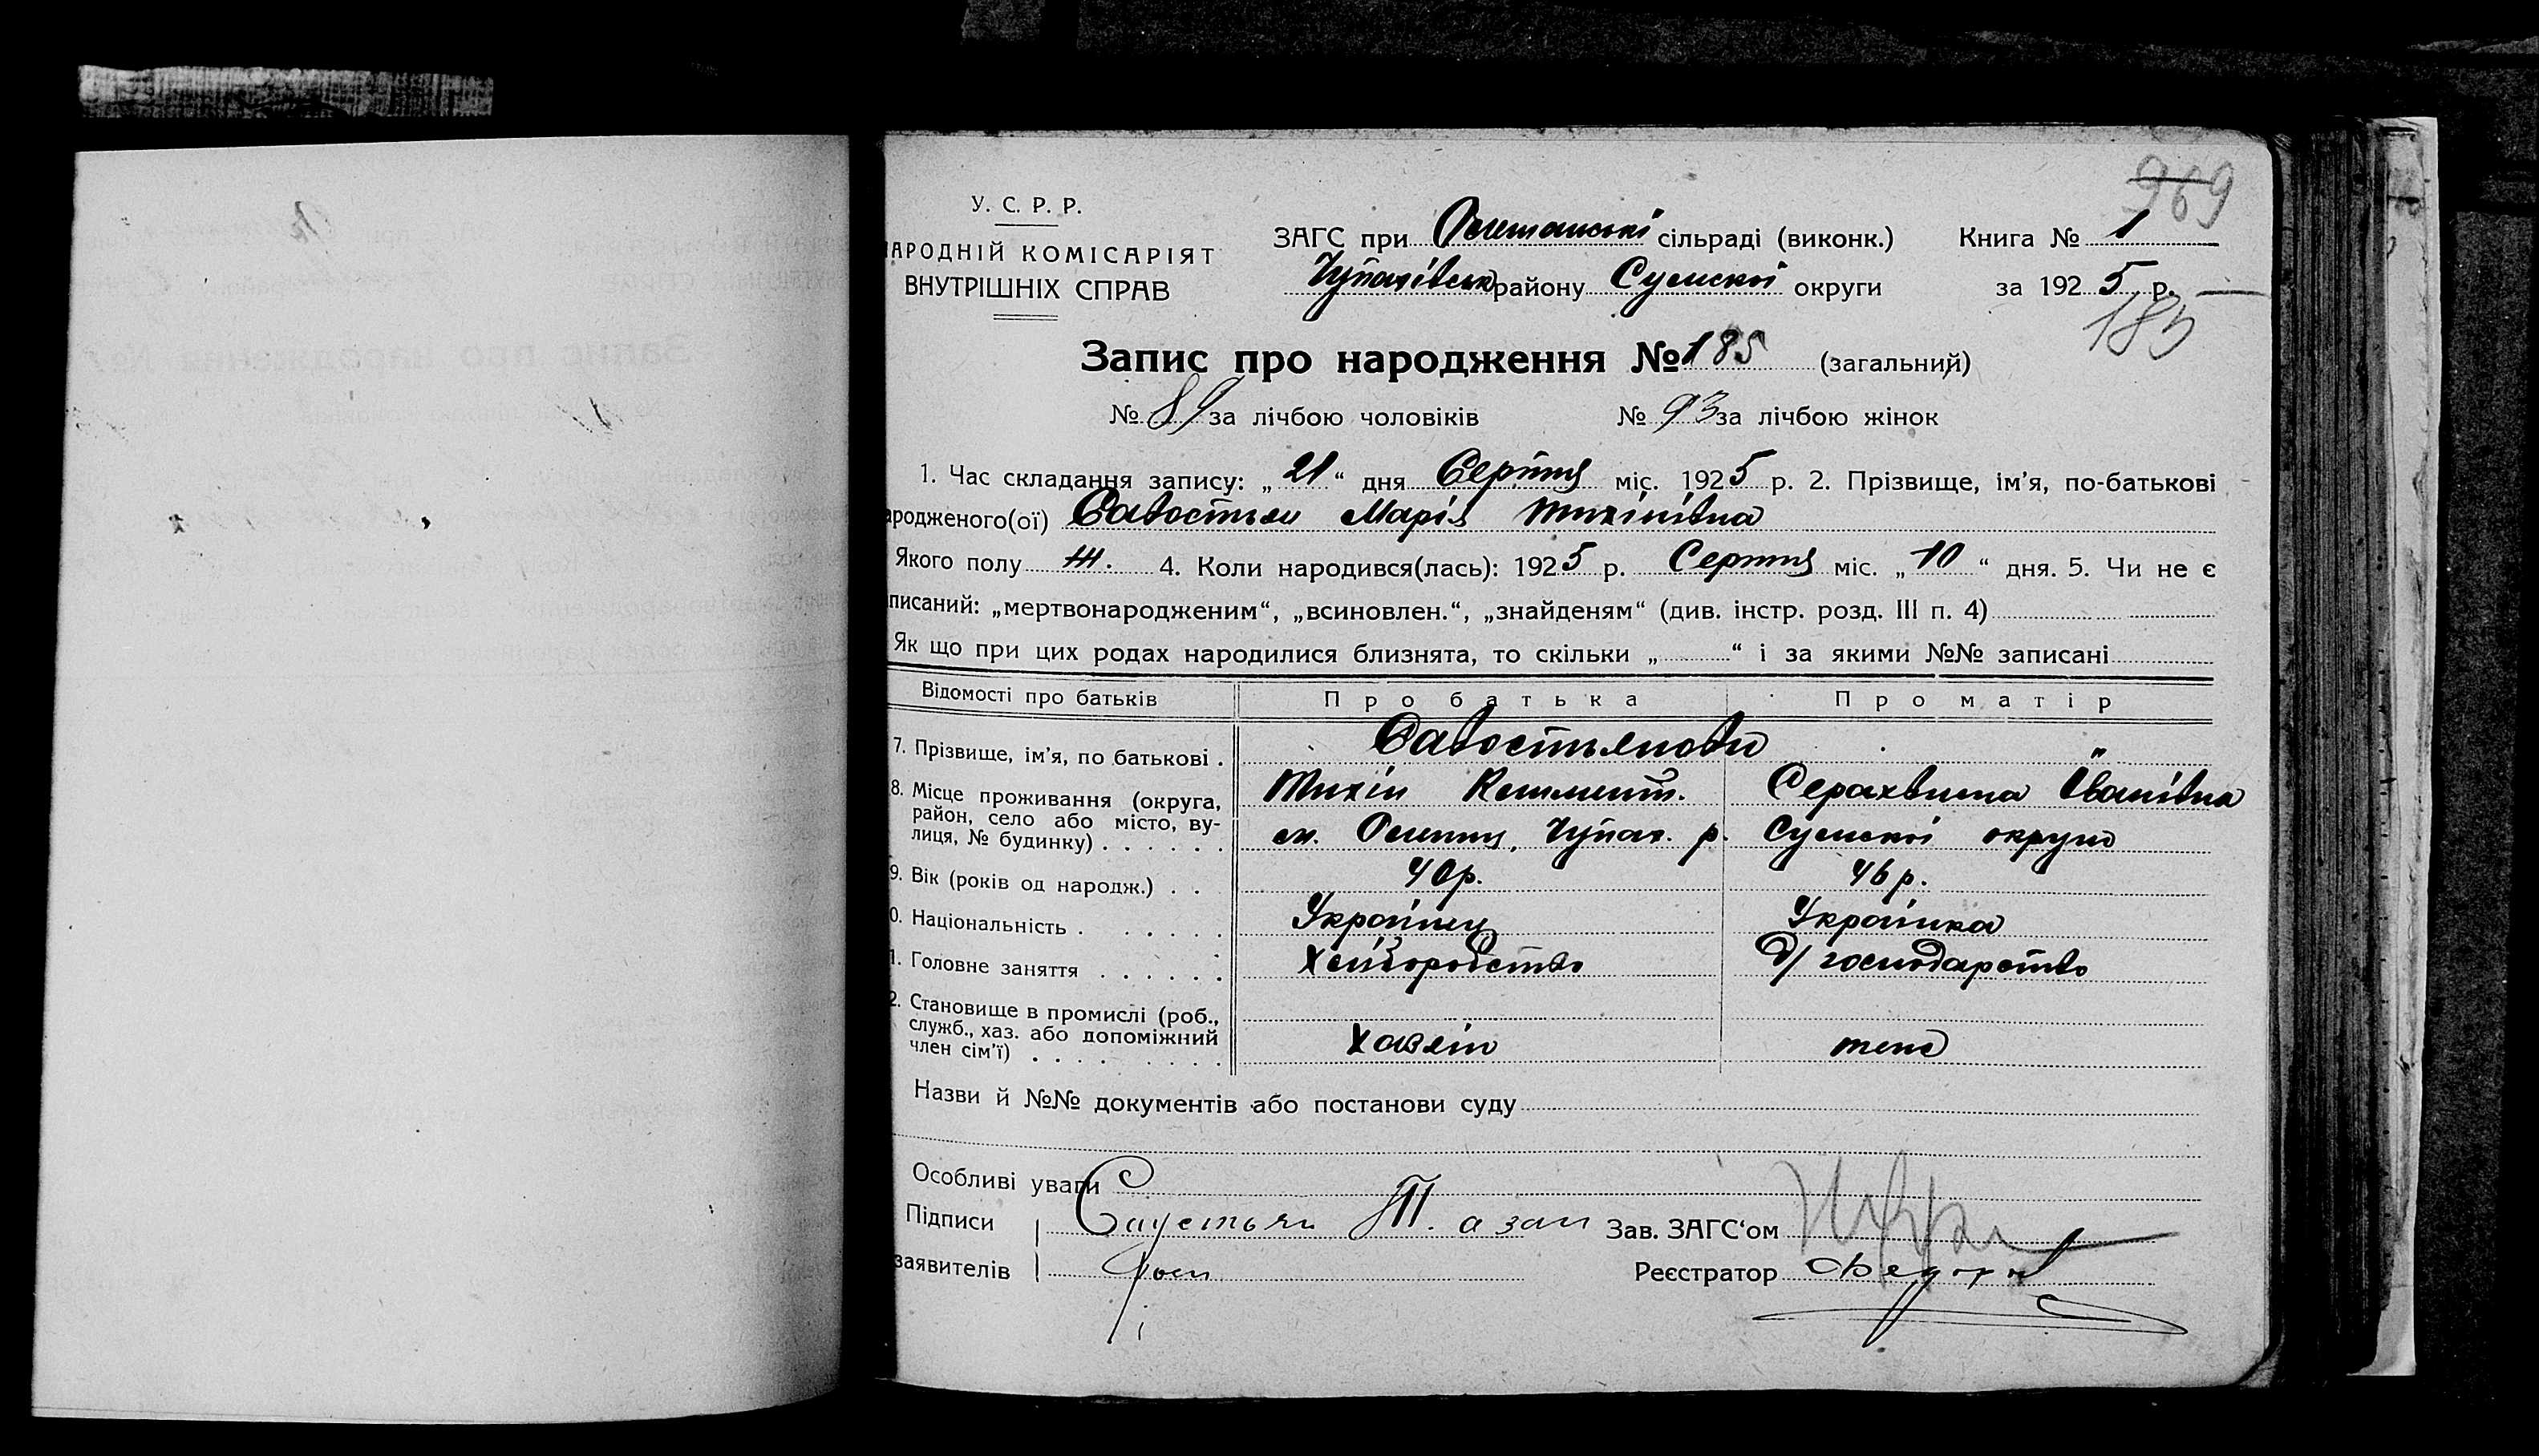 969
У. С. Р. Р.
АРОДНІЙ КОМІСАРІЯТ
ВНУТРІШНІХ СПРАВ
ЗАГС при сільраді (виконк.) Книга № 1
Чупахівськ району Сумскої округи за 1925 р.
185
Запис про народження № 185 (загальний)
№ за лічбою чоловіків № 93 за лічбою жінок
1. Час складання запису: „21“ дня Серпня міс. 1925 р. 2. Прізвище, ім'я, по-батькові
ародженого(ої) Савостьян Марія Тихінівна
Якого полу Ж. 4. Коли народився(лась): 1925 р. Серпня міс. „10“ дня. 5. Чи не є
писаний: „мертвонародженим“, „всиновлен.“, „знайденям“ (див. інстр. розд. III п. 4)
Як що при цих родах народилися близнята, то скільки „ “ і за якими №№ записані
Відомості про батьків Про батька Про матір
7. Прізвище, ім'я, по батькові . Савостьянови "
8. Місце проживання (округа, район, село або місто, вулиця, № будинку) . . . . . . Тихін Климент. Серахвима Іванівна
Чупах. р. Сумскої округи
9. Вік (років од народж.) . . 40р. 46 р.
0. Національність . . . . . . Українец Українка
1. Головне заняття . . . . . . Хліборобство д/господарство
2. Становище в промислі (роб.,
служб., хаз. або допоміжний
член сім'ї) . . . . . . . . Хазяїн
Назви й №№ документів або постанови суду
Особливі уваги
Підписи Саустьян Т. а за Зав. ЗАГС'ом
заявителів Реєстратор Федоров